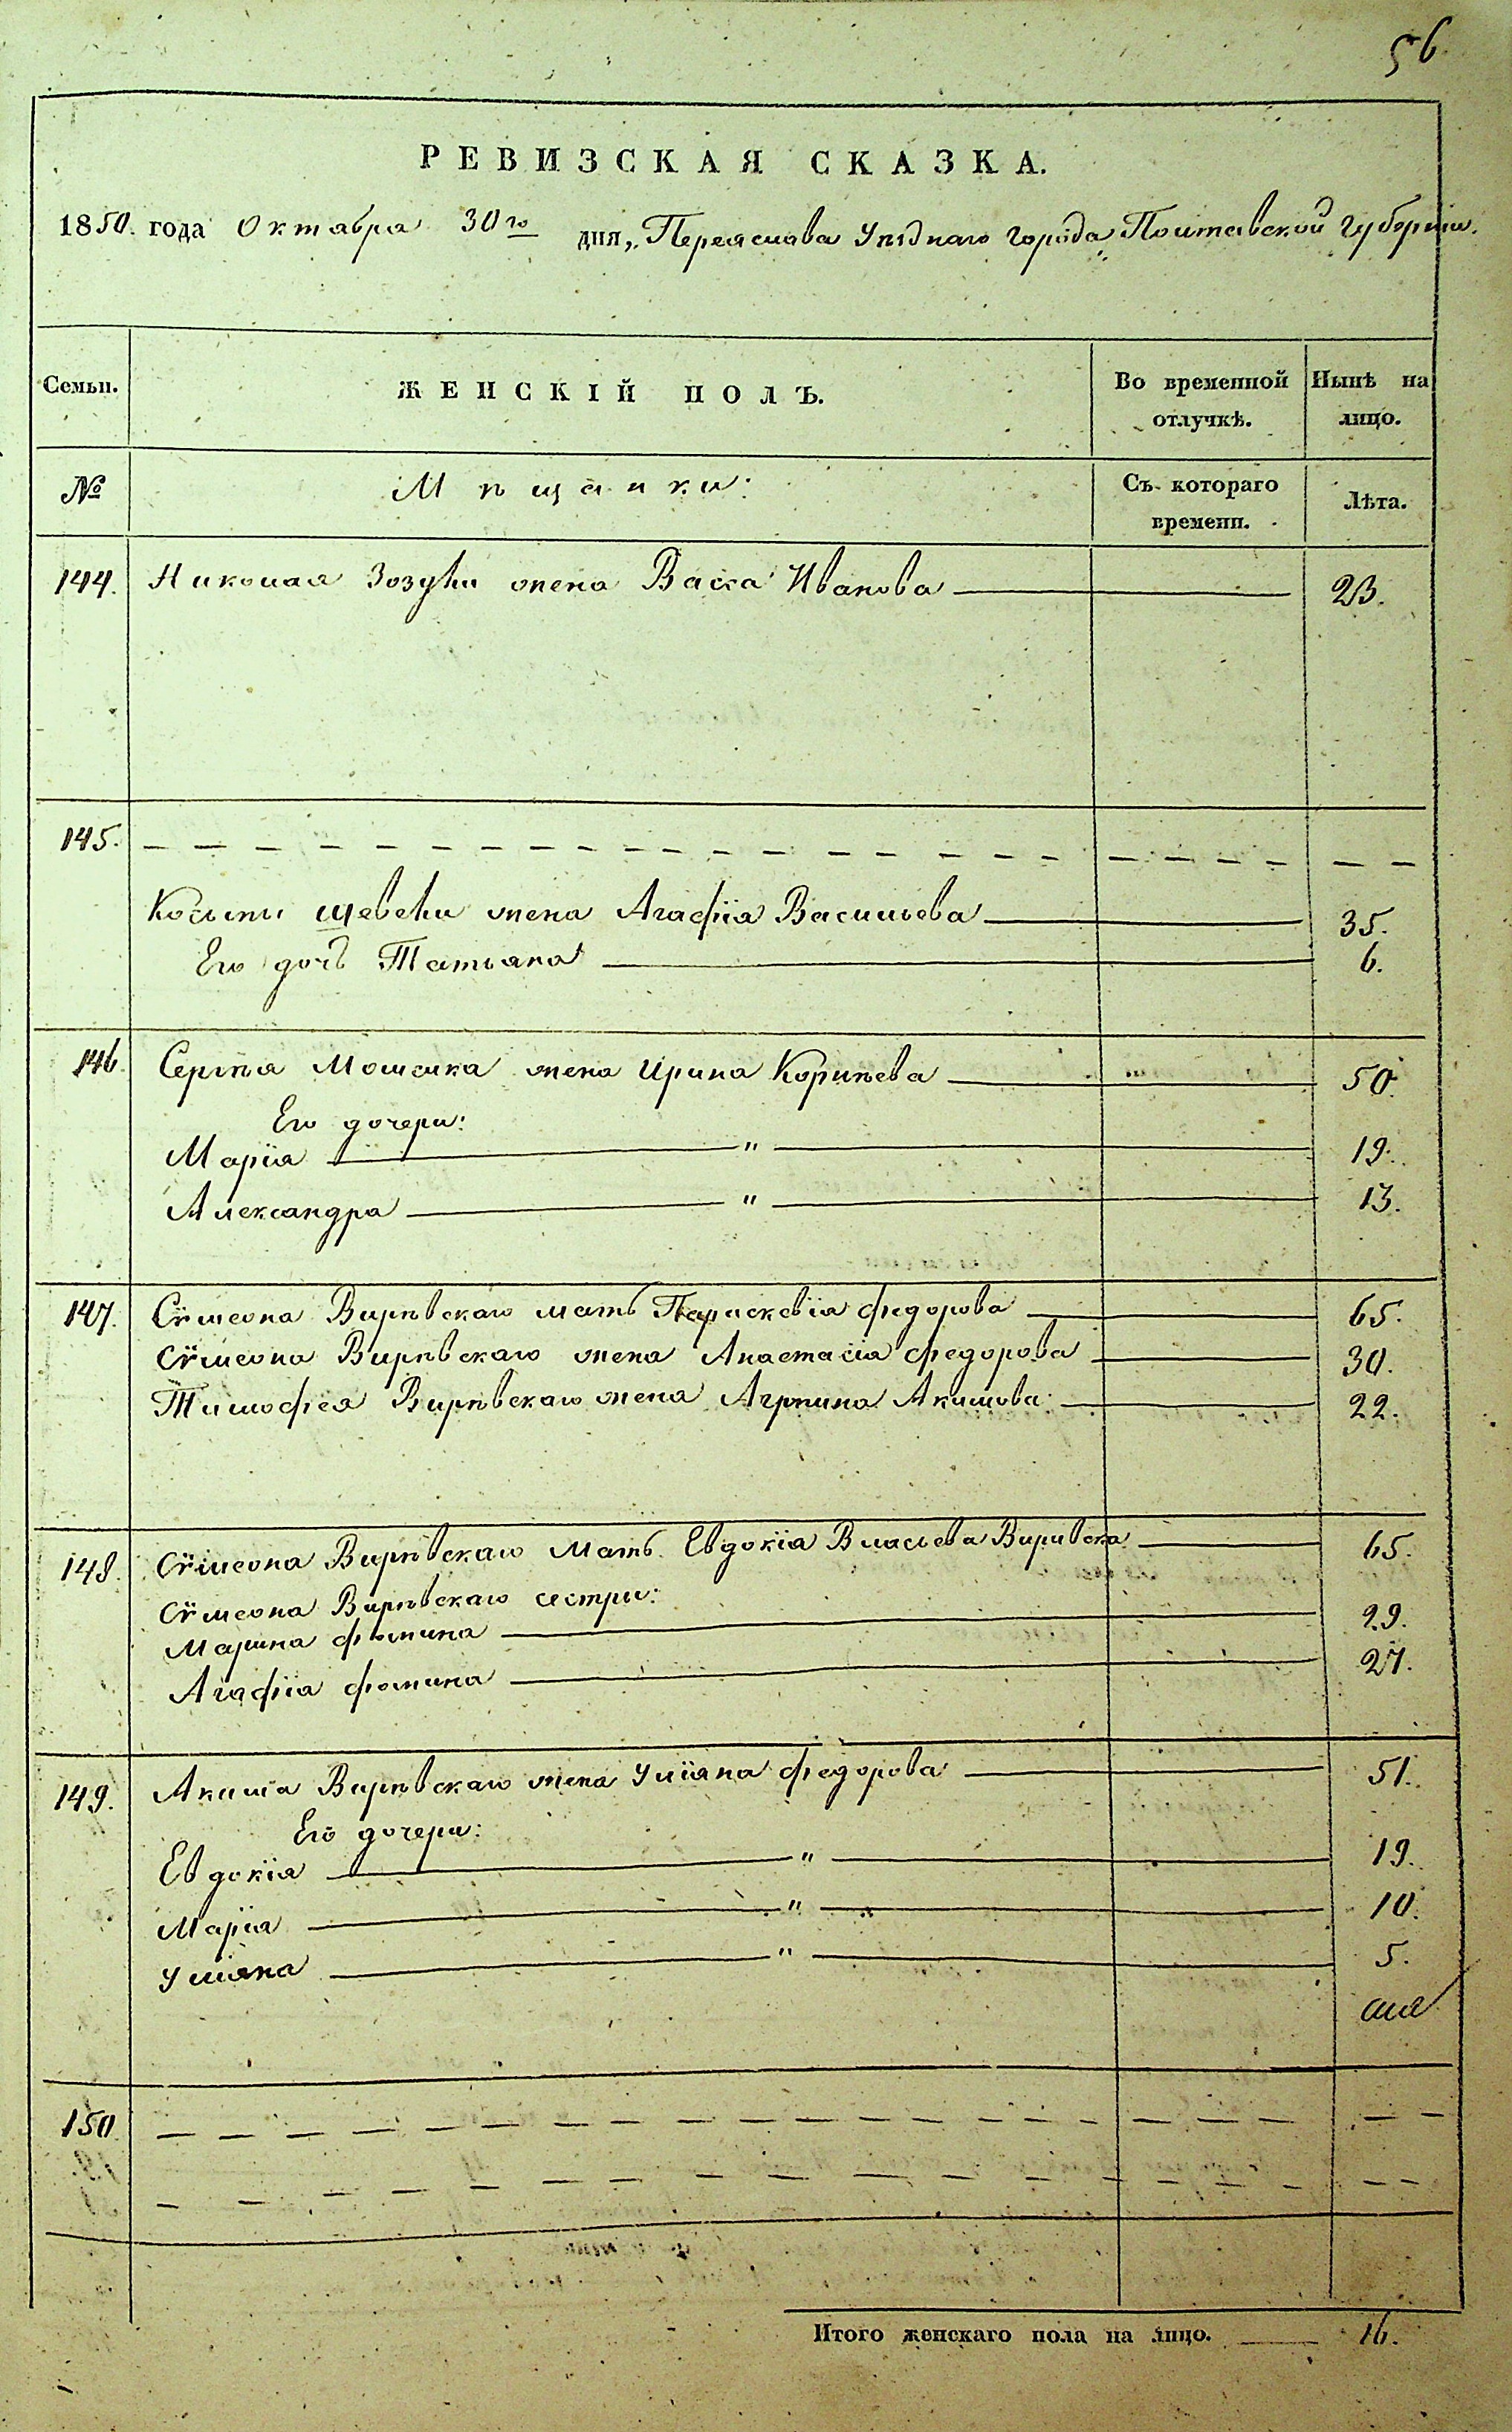 56
РЕВИЗСКАЯ СКАЗКА.
1850. года Октября 30го дня, Переяслава Уѣзднаго города Полтавской Губерніи.
Семьи. ЖЕНСКІЙ ПОЛЪ. Во временной отлучкѣ. Нынѣ на лицо.
№ Мѣщанки: Съ котораго времени. Лѣта.
144. Николая Зозули жена Васса Иванова 23.
145.
Косьмы Шевели жена Агафія Васильева 35.
Его дочь Татьяна 6.
146 Сергѣя жена Ирина Корнѣева 50.
Его дочери:
Марія " 19.
Александра " 13.
147. Сѵмеона Вирѣвскаго мать Параскевіа Федорова 65.
Сѵмеона Вирѣвскаго жена Анастасіа Федорова 30.
Тимофея Вирѣвскаго жена Агрпина Акимова 22.
148. Сѵмеона Вирѣвскаго мать Евдокіа Власьева Виривска 65.
Сѵмеона Вирѣвскаго сестры:
Марина Фомина 29.
Агафіа Фомина 27.
149. Акима Вирѣвскаго жена Уліяна Федорова 51.
Его дочери:
Евдокіа " 19.
Маріа " 10.
Уліяна " 5.
150
Итого женскаго пола на лицо. 16.